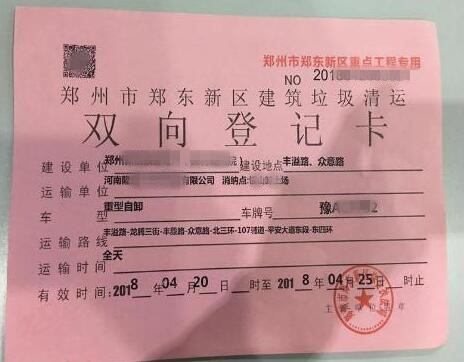 郑州市郑东新区重点工程专用
NO 201
郑州市郑东新区建筑垃圾清运
双向登记卡
建设单位 郑州 院） 建设地点 丰溢路、众意路
运输单位 河南 有限公司 消纳点: 土场
车型 重型自卸 车牌号 豫A 2
运输路线 丰溢路-龙腾三街-丰意路-众意路-北三环-107辅道-平安大道东段-东四环
运输时间 全天
有效时间: 2018 04 20 时至 2018 04月25日 时止
主 单位 章